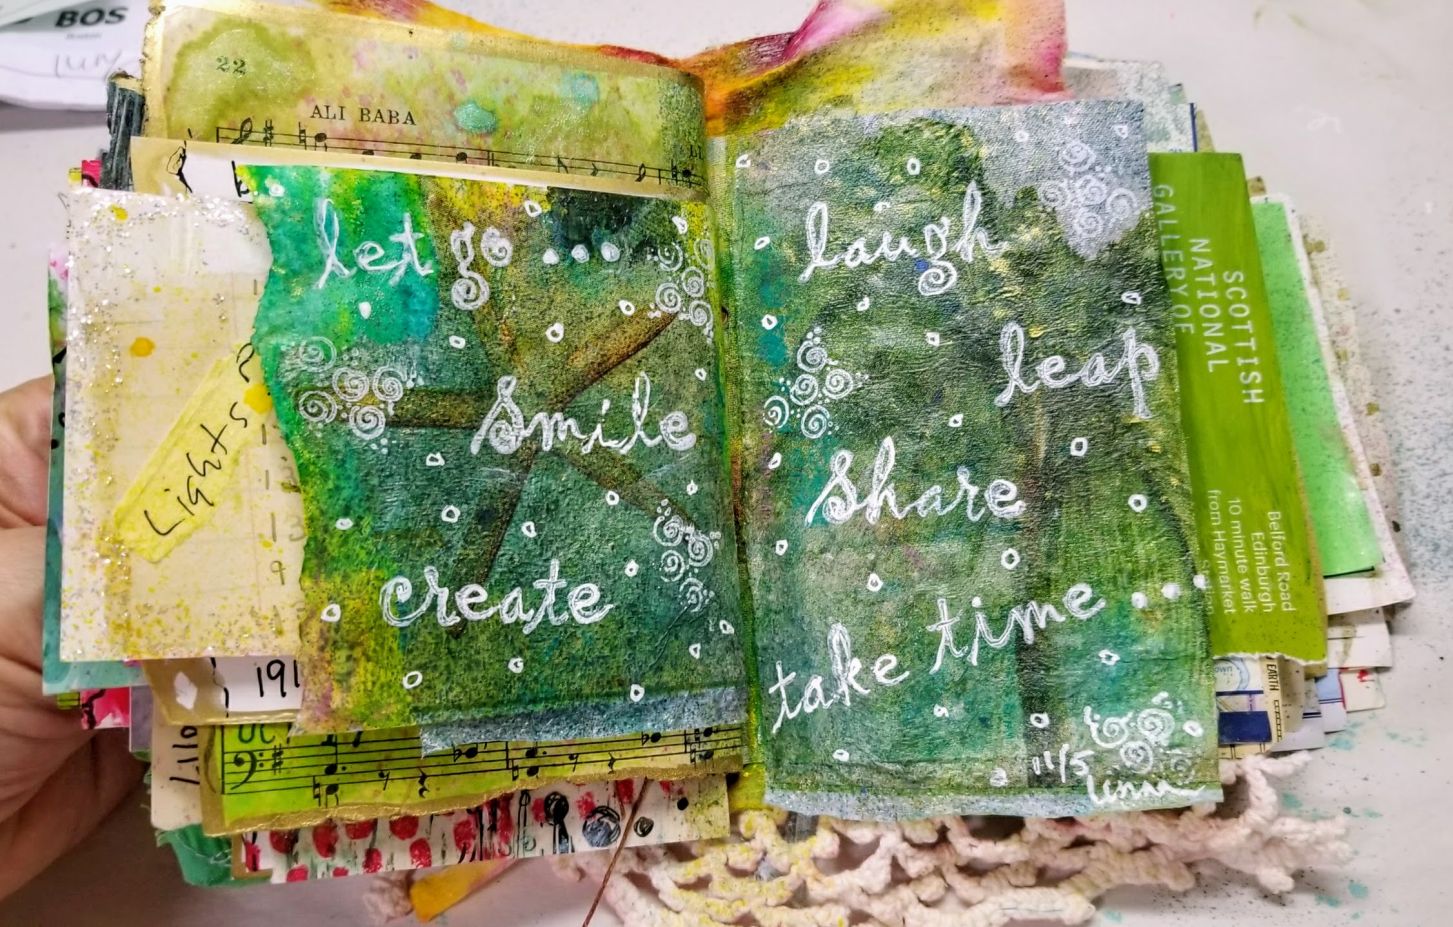 BOS
22
ALI BABA
let go ....
smile
create
Lights
191
laugh
leap
share
take time ...
11/5
SCOTTISH
NATIONAL
GALLERY OF
Belford Road
Edinburgh
10 minute walk
from Haymarket
EARTH